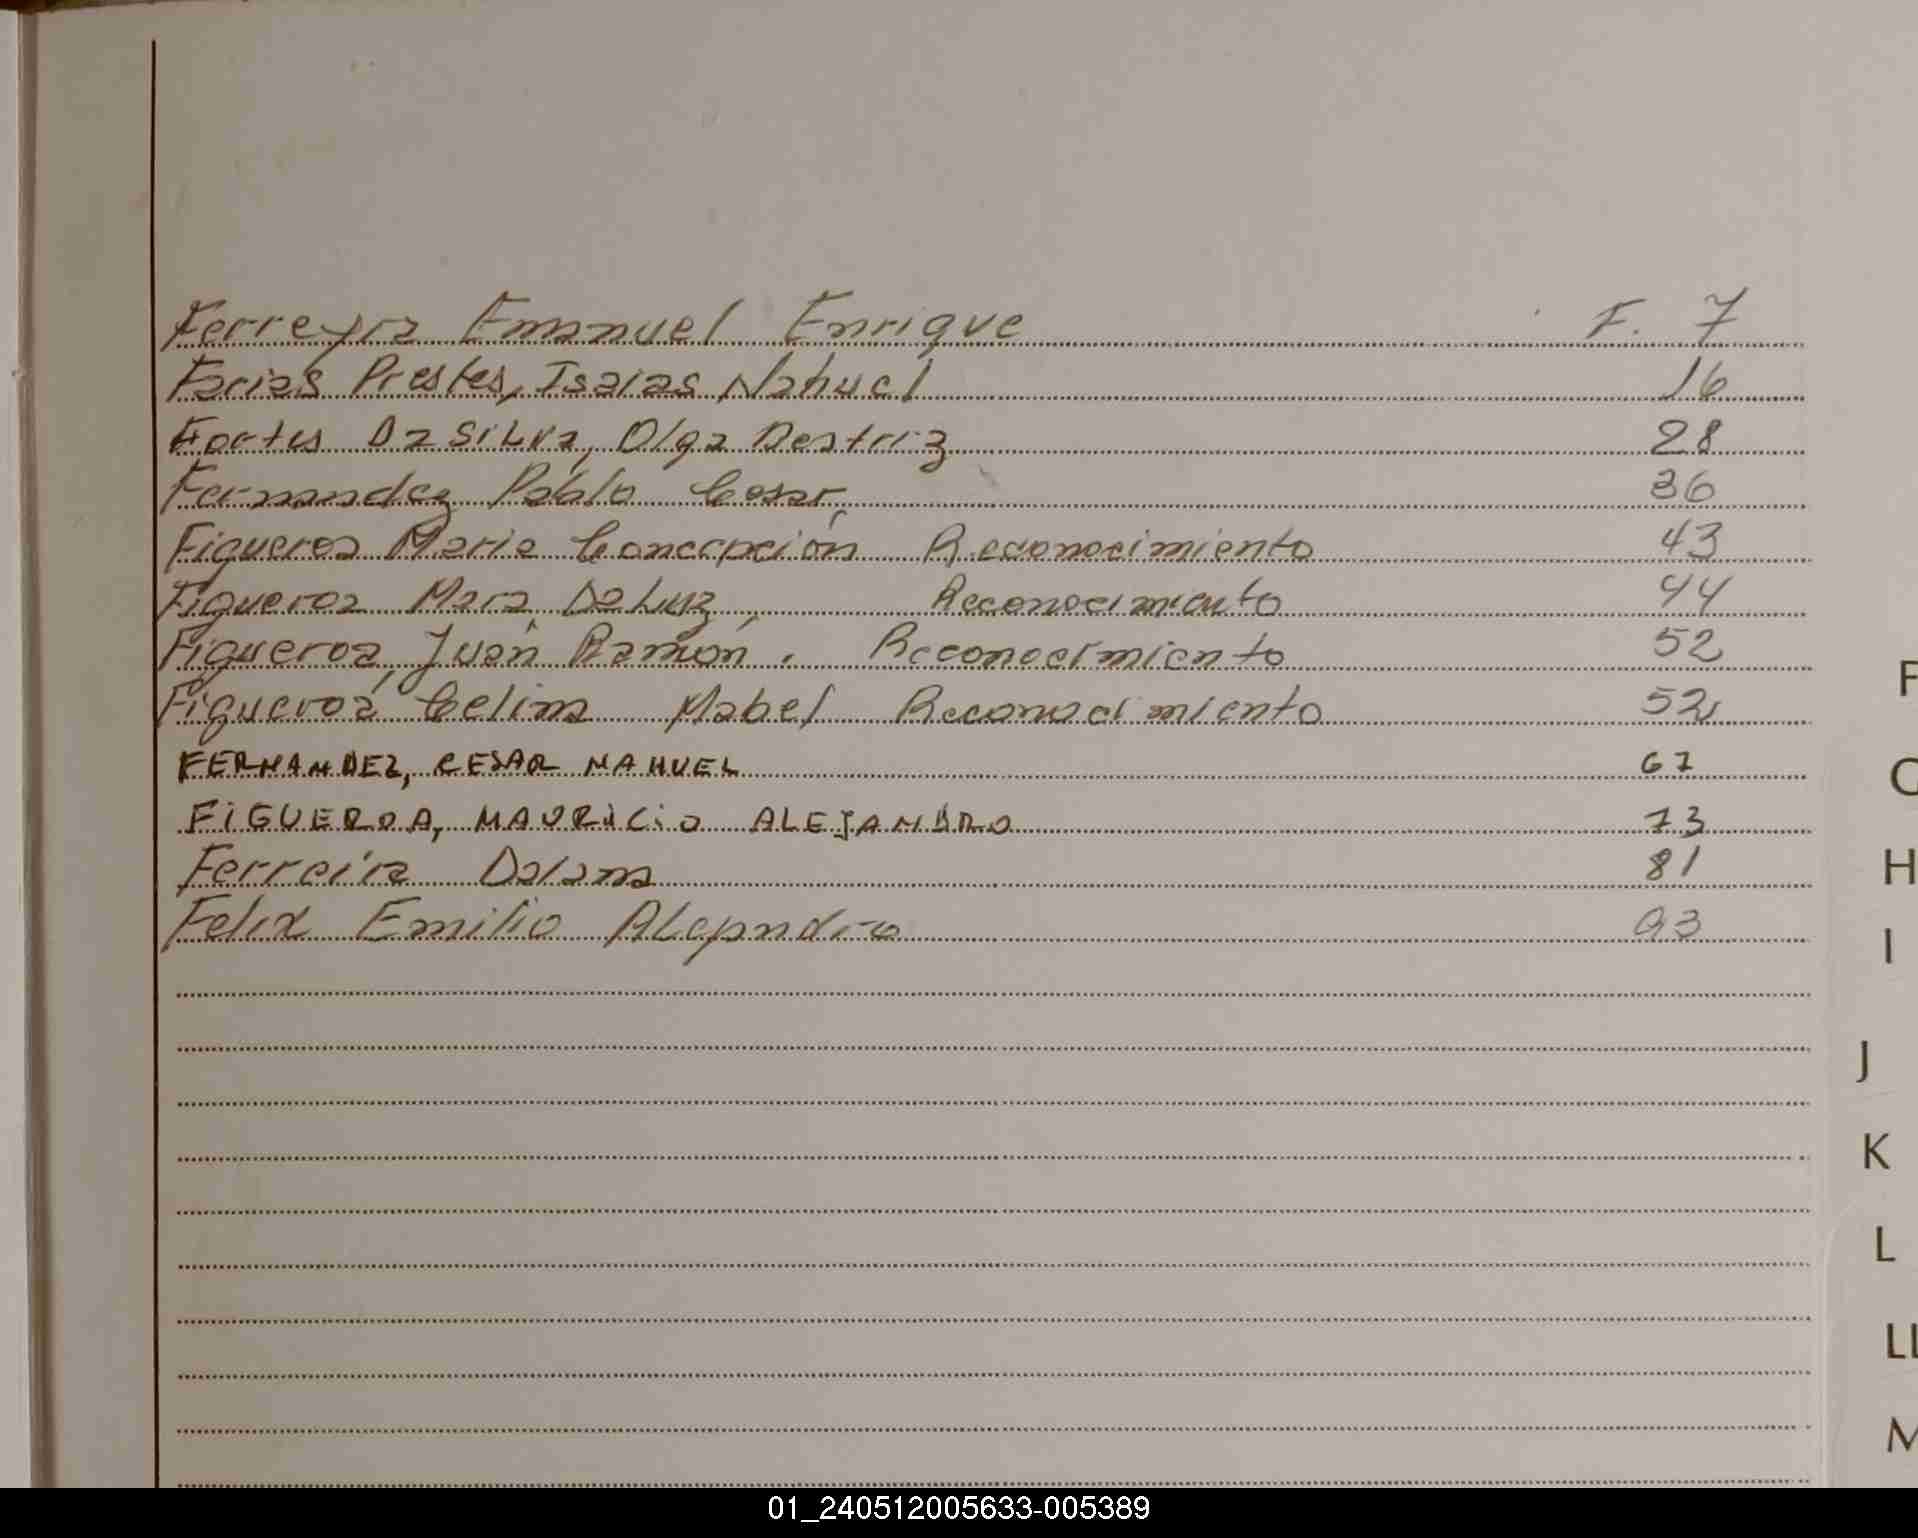 Ferreyra Emanuel Enrique F. 7
Farias Prestes, Isaias Nahuel 16
Fortes Da Silva, Olga Beatriz 28
Fernandez Pablo Cesar 36
Figueroa Maria Concepción Reconocimiento 43
Figueroa Mara Da Luz, Reconocimiento 44
Figueroa, Juan Ramón. Reconocimiento 52
Figueroa Celina Mabel Reconocimiento 52
FERNANDEZ, CESAR NAHUEL 67
FIGUEROA, MAURICIO ALEJANDRO 73
Ferreira Daiana 81
Felix Emilio Alejandro 93
F
G
H
I
J
K
L
LL
M
01_240512005633-005389